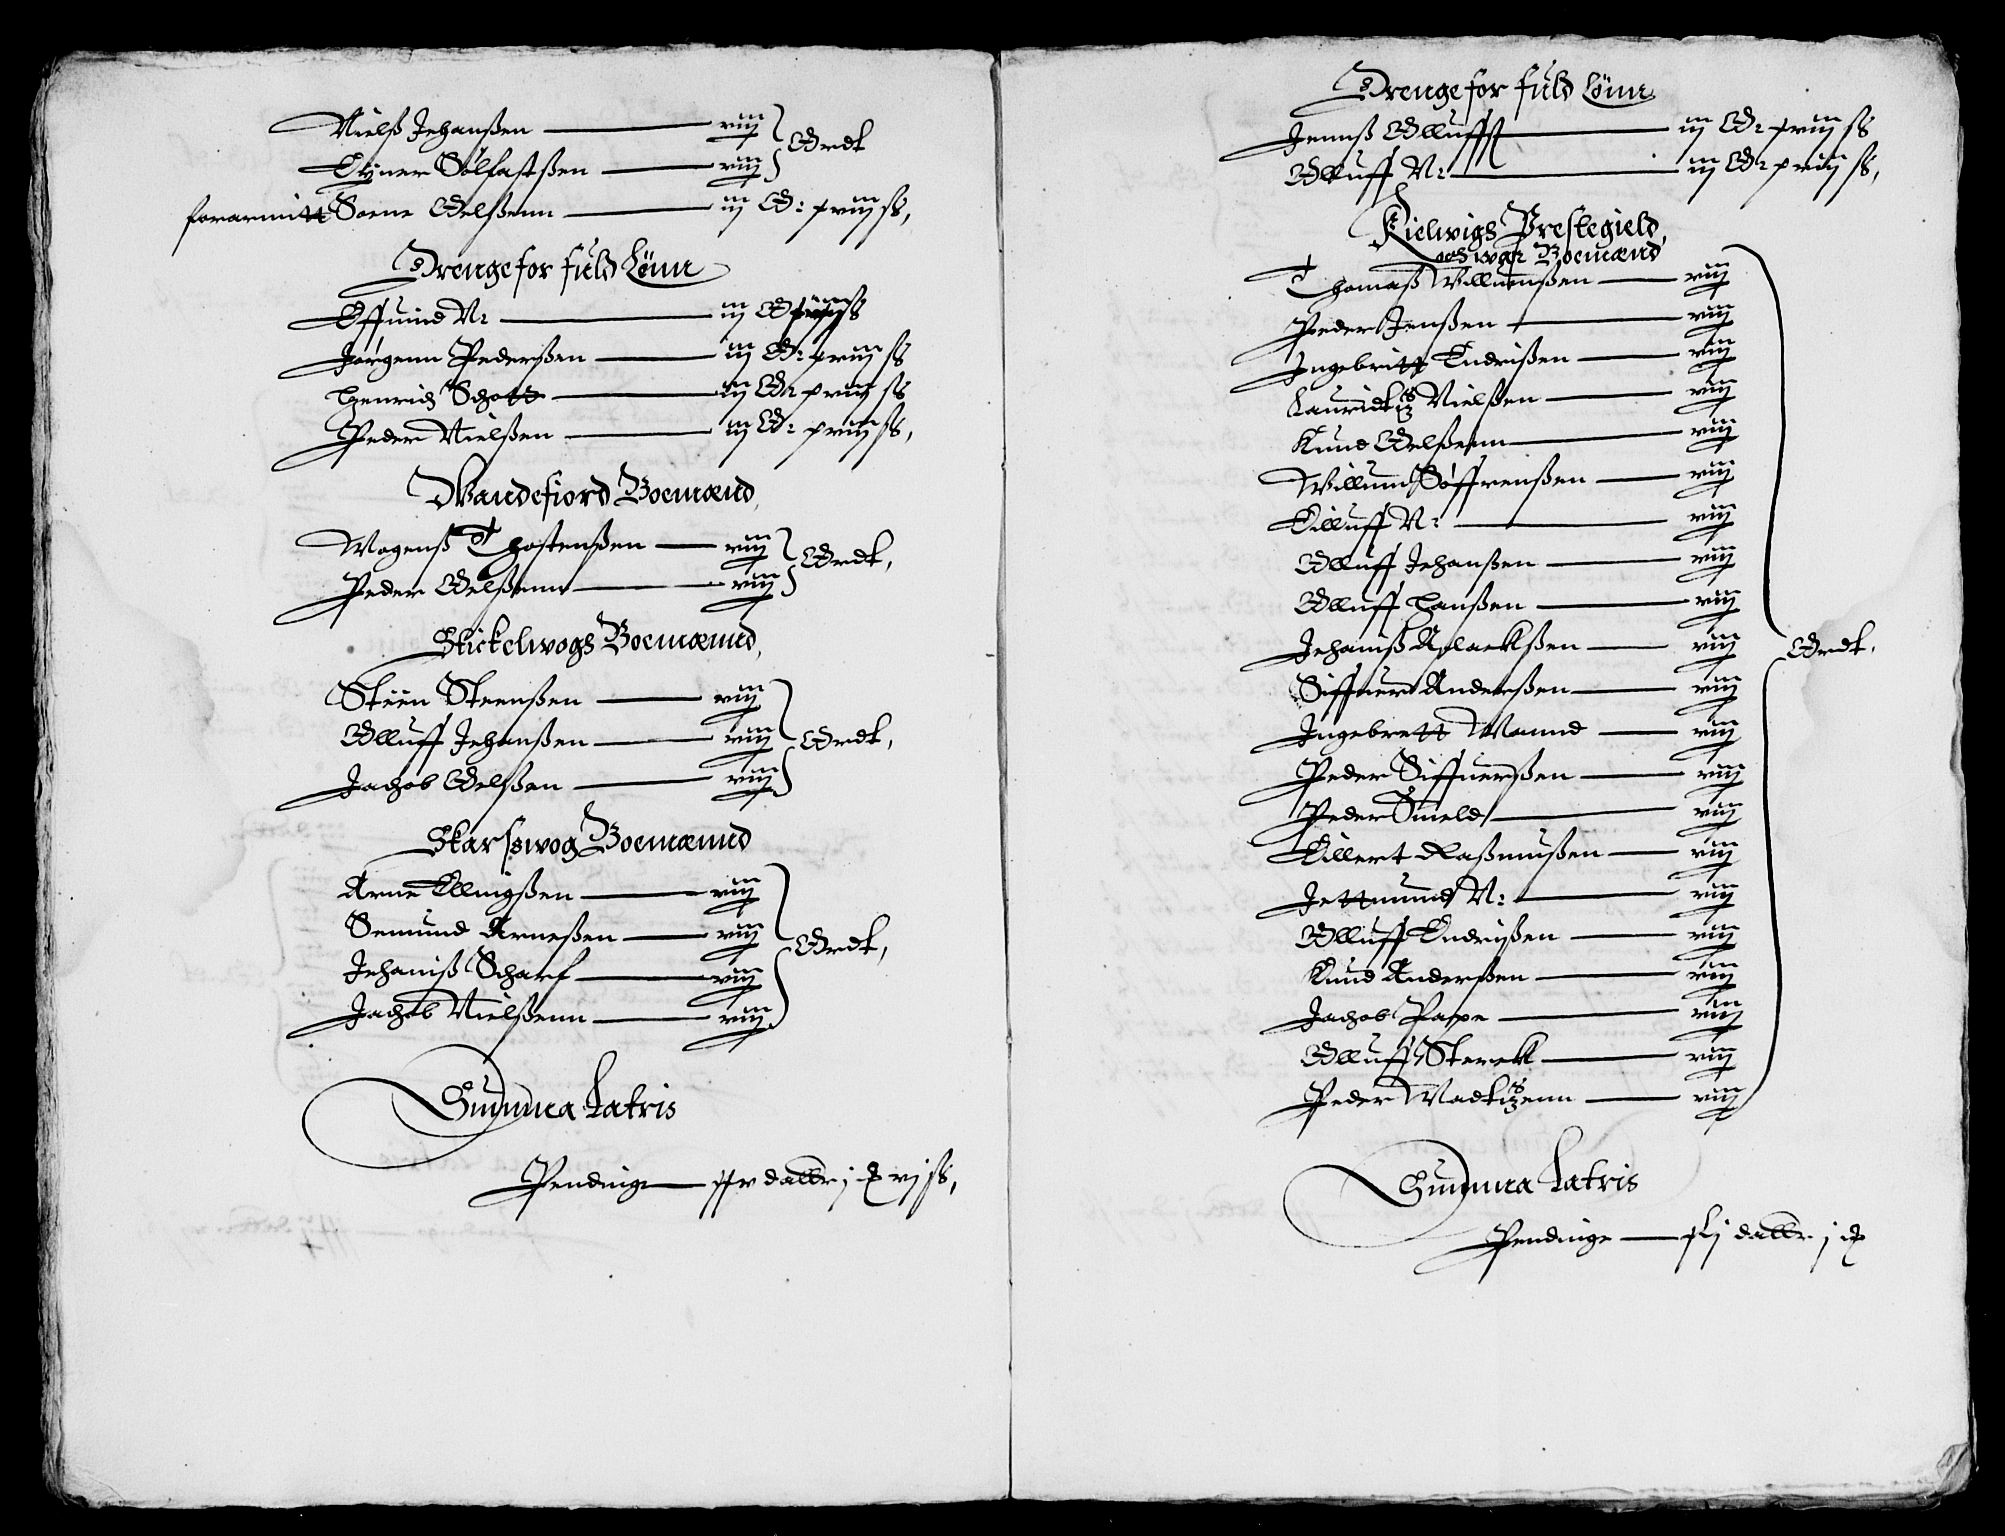 Nielß Jehanßen — viij
Eyner Sølfastßen — viij } Ordt
forarmitt Soene Oelßenn — iij O: xviij ß,
Drenge for fuld Lønn
Effuind N: — iij O xviij ß
Jørgenn Pederßen — iij O: xviij ß
Henrich Schott — iij O: xviij ß
Peder Nielßen — iij O: xviij ß,
Wandefiord Boemænd,
Mogenß Thostenßen — viij
Peder Oelßenn — viij } Ordt,
Skickelwogs Boemænnd,
Steen Steenßen — viij
Olluff Jehanßen — viij } Ordt,
Jachob Oelßen — viij
Skarßwog Boemænnd
Arne Ellingßen — viij
Semund Arneßen — viij } Ordt,
Jehanß Scharf — viij
Jachob Nielßenn — viij
Summa Latris
Pendinge — xxv daller j O vj ß,
Drenge for fuld Lønn
Jennß Olluffß — iij O: xviij ß
Olluff N: — iij O: xviij ß,
Kielwigs Prestegield,
Boemænd
Thomaß Willumßen — viij
Peder Jenßen — viij
Ingebritt Endrißen — viij
Lauridtz Nielßen — viij
Knud Oelßenn — viij
Willum Søffrenßen — viij
Eilluff N: — viij
Olluff Jehanßen — viij
Olluff Hanßen — viij
Jehanß Aslackßen — viij } Ordt,
Siffuer Anderßen — viij
Ingebrett Mannd — viij
Peder Siffuerßen — viij
Peder Smeld — viij
Eillert Raßmußen — viij
Jettmund N: — viij
Olluff Endrißen — viij
Knud Anderßen — viij
Jachob Pape — viij
Olluff Sterck — viij
Peder Madtzenn — viij
Summa Latris
Pendinge — xlj daller j O